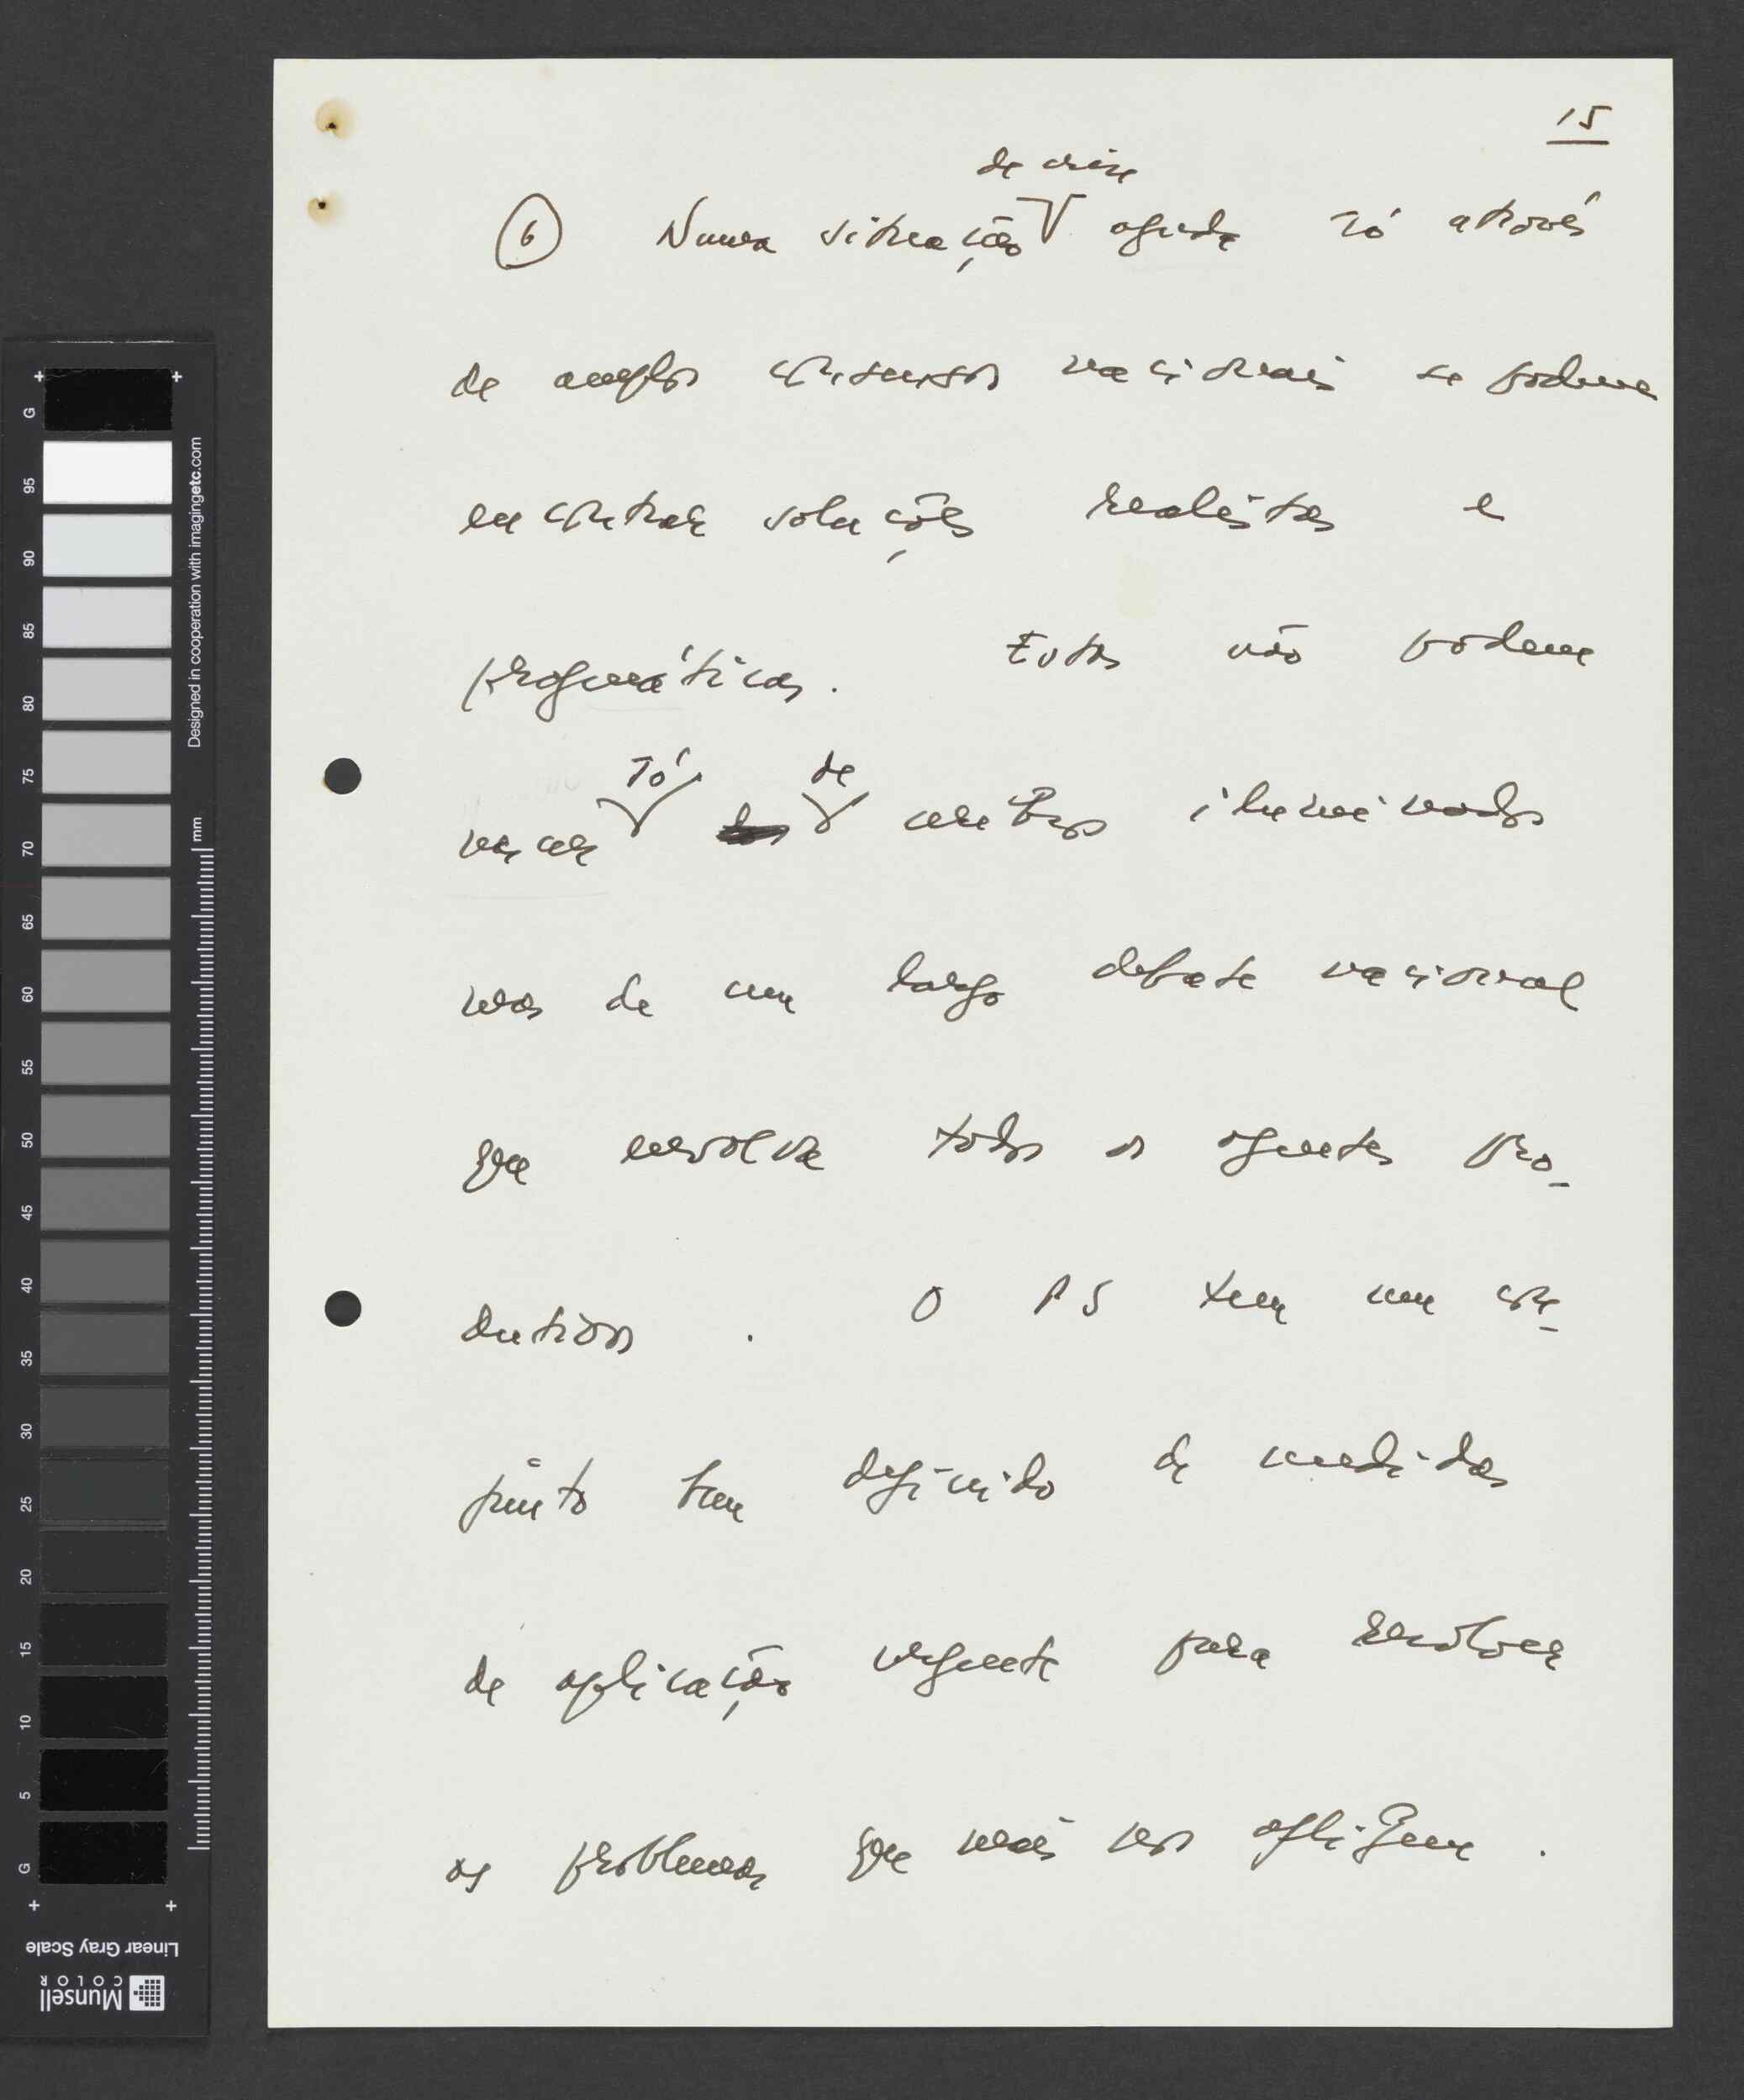 15
de crise
6 Numa situação aguda só através
de amplos consensos nacionais se podem
encontrar soluções realistas e
pragmáticas. Estas não podem
só de
nascer mentes iluminados
mas de um largo debate nacional
que envolva todos os agentes pro-
dutivos . O PS tem um con-
junto bem definido de medidas
de aplicação urgente para resolver
os problemas que mais nos afligem .
G 95 90 85 80 75 70 65 60 55 50 45 40 35 30 25 20 15 10 5 G
Designed in cooperation with imagingetc.com
mm
Linear Gray Scale
Munsell
COLOR